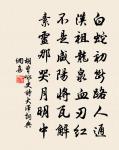 白蛇初斷路人通
漢祖龍泉血刃紅
不是咸陽將瓦解
素靈那哭月明中
胡曾詠史詩大澤詞典
網